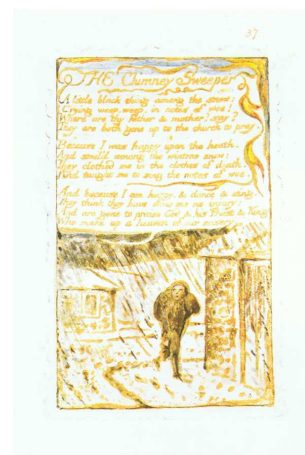 37
THE Chimney Sweeper
A little black thing among the snow:
Crying weep, weep, in notes of woe!
Where are thy father & mother? say?
They are both gone up to the church to pray.
Because I was happy upon the heath,
And smil'd among the winters snow:
They clothed me in the clothes of death,
And taught me to sing the notes of woe.
And because I am happy, & dance & sing,
They think they have done me no injury:
And are gone to praise God & his Priest & King
Who make up a heaven of our misery.